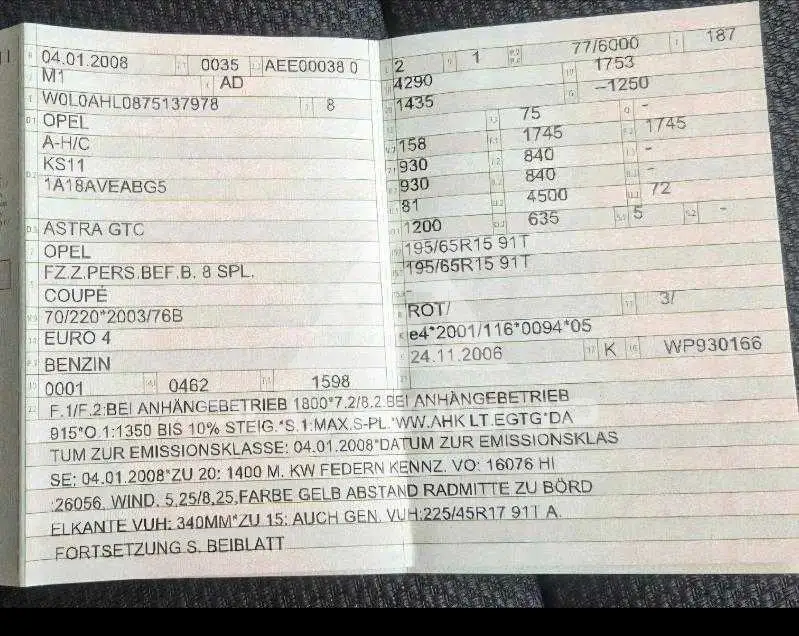 04.01.2008 0035 AEE00038 0
M1 AD
W0L0AHL0875137978 8
OPEL
A-H/C
KS11
1A18AVEABG5
ASTRA GTC
OPEL
FZ.Z.PERS.BEF.B. 8 SPL.
COUPÉ
70/220*2003/76B
EURO 4
BENZIN
0001 0462 1598
2 1 77/6000 187
4290 1753
1435 –1250
75 -
158 1745 1745
930 840 -
930 840 -
81 4500 72
1200 635 5 -
195/65R15 91T
195/65R15 91T
-
ROT/ 3/
e4*2001/116*0094*05
24.11.2006 K WP930166
F.1/F.2:BEI ANHÄNGEBETRIEB 1800*7.2/8.2:BEI ANHÄNGEBETRIEB
915*O.1:1350 BIS 10% STEIG.*S.1:MAX.S-PL.*WW.AHK LT.EGTG*DA
TUM ZUR EMISSIONSKLASSE: 04.01.2008*DATUM ZUR EMISSIONSKLAS
SE: 04.01.2008*ZU 20: 1400 M. KW FEDERN KENNZ. VO: 16076 HI
:26056, WIND. 5,25/8,25,FARBE GELB ABSTAND RADMITTE ZU BÖRD
ELKANTE VUH: 340MM*ZU 15: AUCH GEN. VUH:225/45R17 91T A.
FORTSETZUNG S. BEIBLATT